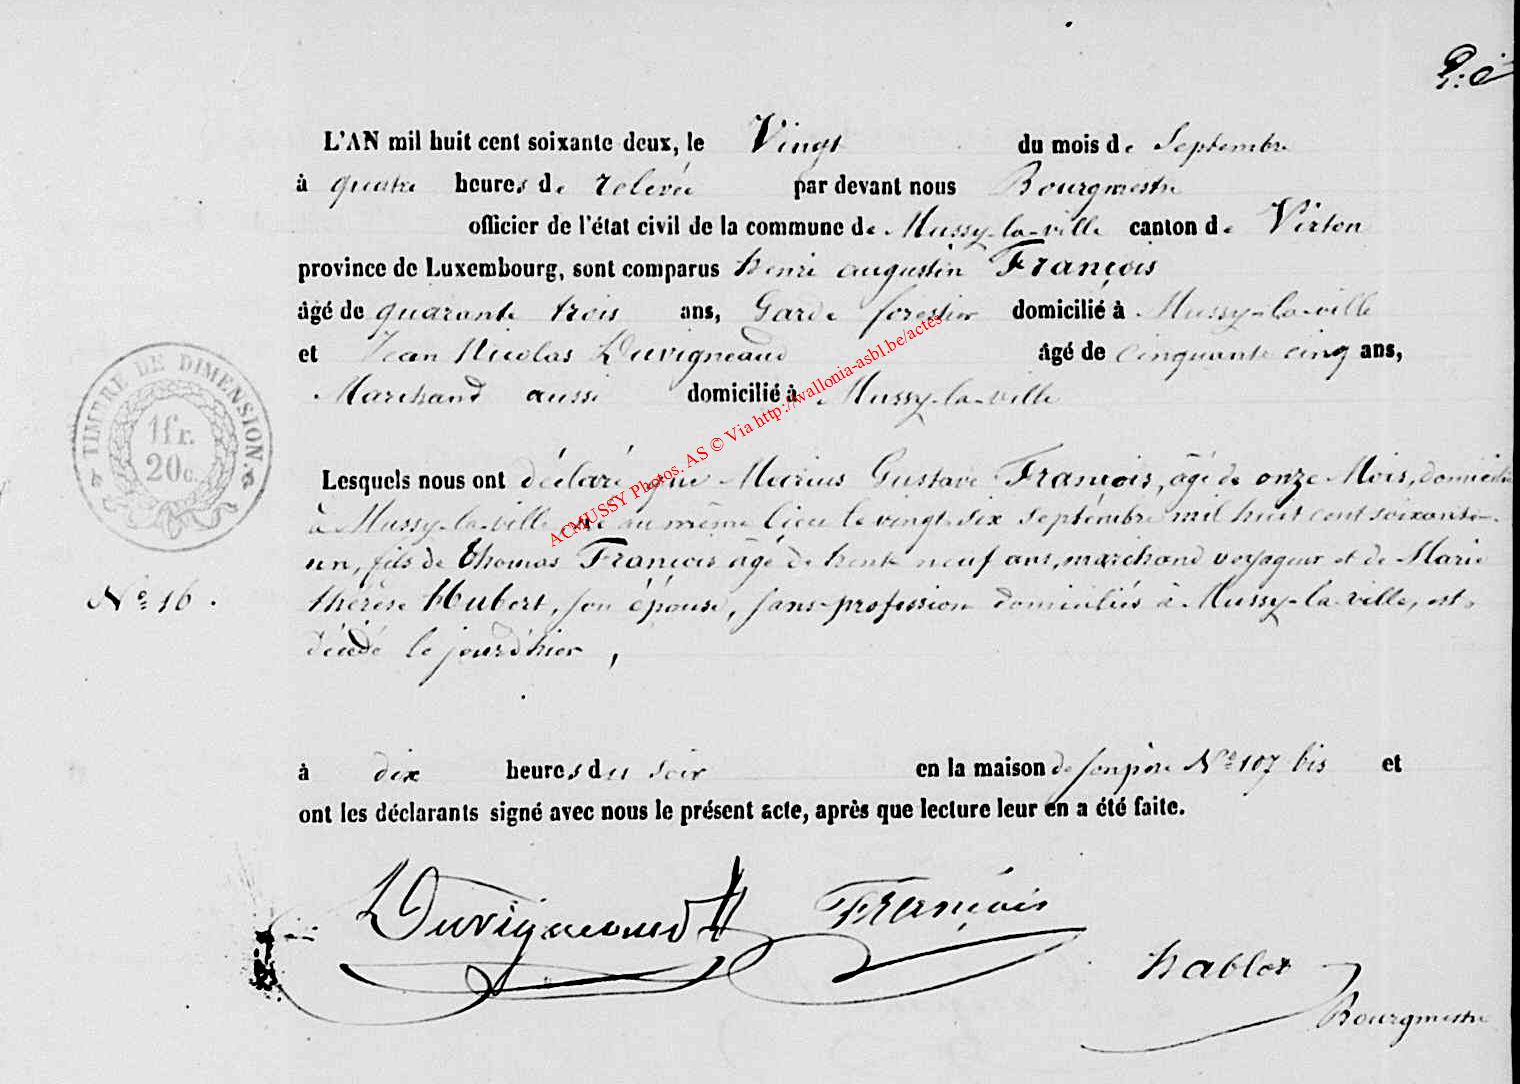 L'AN mil huit cent soixante deux, le Vingt du mois de Septembre
à quatre heures de relevée par devant nous Bourgmestre
officier de l'état civil de la commune de Mussy-la-ville canton de Virton
province de Luxembourg, sont comparus henri augustin François
âgé de quarante trois ans, Garde forestier domicilié à Mussy-la-ville
et Jean Nicolas Duvigneaud âgé de cinquante cinq ans,
Marchand aussi domicilié à Mussy-la-ville
TIMBRE DE DIMENSION.
1fr.
20c.
Lesquels nous ont déclaré que Marius Gustave François, âgé de onze Mois, domicilié
à Mussy-la-ville né au même lieu le vingt-six septembre mil huit cent soixante-
un, fils de Thomas François âgé de trente neuf ans, marchand voyageur et de Marie
N° 16.
thérèse Hubert, son épouse, sans profession domiciliés à Mussy-la-ville, est
décédé le jourd'hier,
à dix heures du soir en la maison de son père N° 107 bis et
ont les déclarants signé avec nous le présent acte, après que lecture leur en a été faite.
Duvigneaud François
hablot
Bourgmestre
ACMUSSY Photos. AS © Via http://wallonia-asbl.be/actes